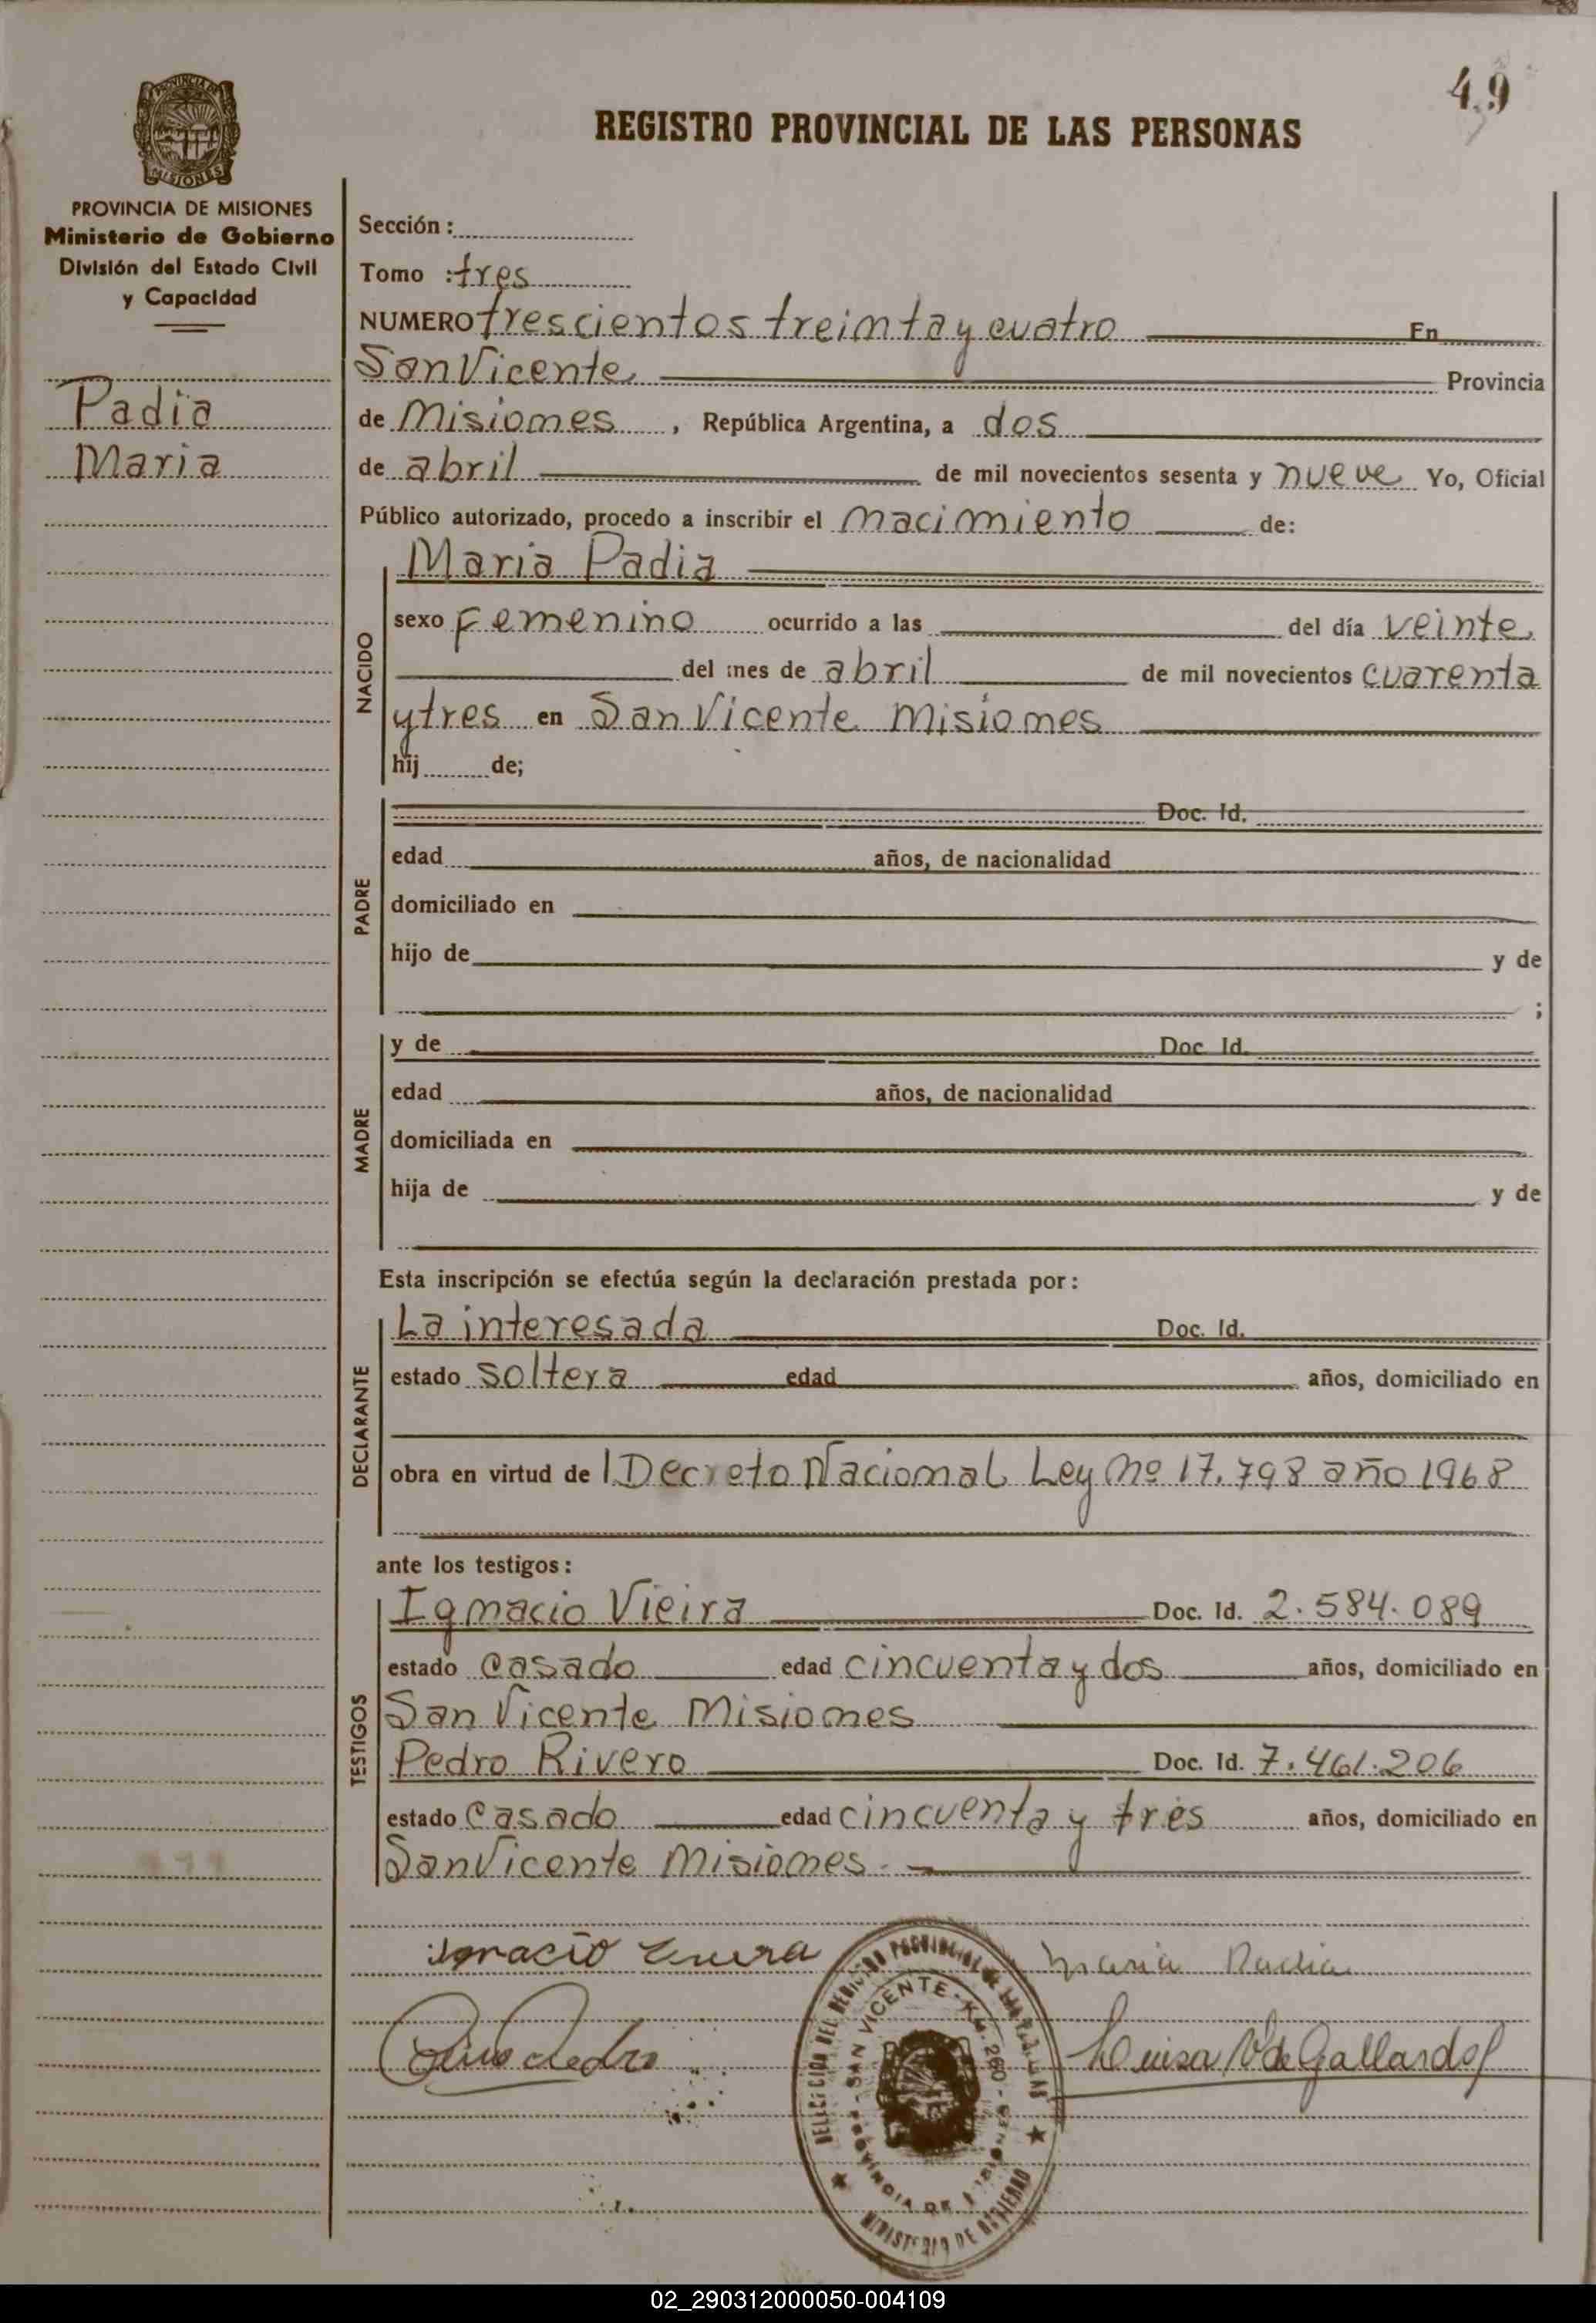 49
REGISTRO PROVINCIAL DE LAS PERSONAS
PROVINCIA DE MISIONES
MISIONES
PROVINCIA DE MISIONES
Ministerio de Gobierno
División del Estado Civil
y Capacidad
Padia
Maria
Sección :
Tomo : tres
NUMERO trescientos treinta y cuatro En
San Vicente Provincia
de Misiones , República Argentina, a dos
de abril de mil novecientos sesenta y nueve Yo, Oficial
Público autorizado, procedo a inscribir el nacimiento de:
Maria Padia
NACIDO
sexo Femenino ocurrido a las del día veinte
del mes de abril de mil novecientos cuarenta
y tres en San Vicente Misiones
hij de;
PADRE
Doc. Id.
edad años, de nacionalidad
domiciliado en
hijo de y de
;
MADRE
y de Doc. Id.
edad años, de nacionalidad
domiciliada en
hija de y de
Esta inscripción se efectúa según la declaración prestada por :
DECLARANTE
La interesada Doc. Id.
estado soltera edad años, domiciliado en
obra en virtud de l Decreto Nacional Ley Nº 17.798 año 1968
ante los testigos :
TESTIGOS
Ignacio Vieira Doc. Id. 2.584.089
estado casado edad cincuenta y dos años, domiciliado en
San Vicente Misiones
Pedro Rivero Doc. Id. 7.461.206
estado casado edad cincuenta y tres años, domiciliado en
San Vicente Misiones.
Ignacio Vieira
Maria Padia
Pedro
Luisa V de Gallardo
DELEGACION DEL REGISTRO PROVINCIAL DE LAS PERSONAS
SAN VICENTE - KM. 260 -
PROVINCIA DE MISIONES
MINISTERIO DE GOBIERNO
02_290312000050-004109